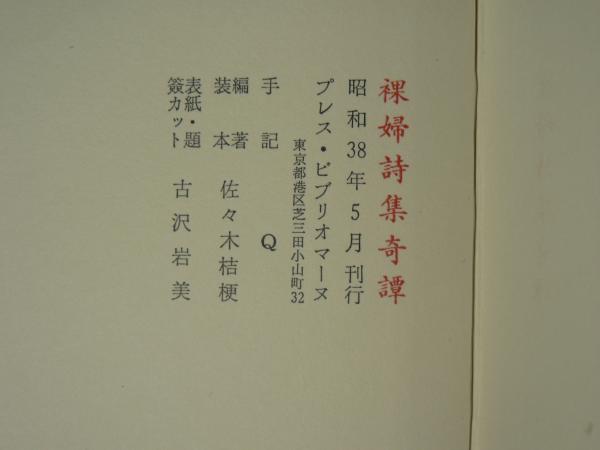 裸婦詩集奇譚
昭和38年5月刊行
プレス・ビブリオマーヌ
東京都港区芝三田小山町32
手記 Q
編著
装本 佐々木桔梗
表紙・題
簽カット 古沢岩美